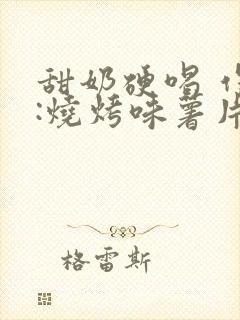 甜奶硬唱
:燒烤味薯片
格雷斯